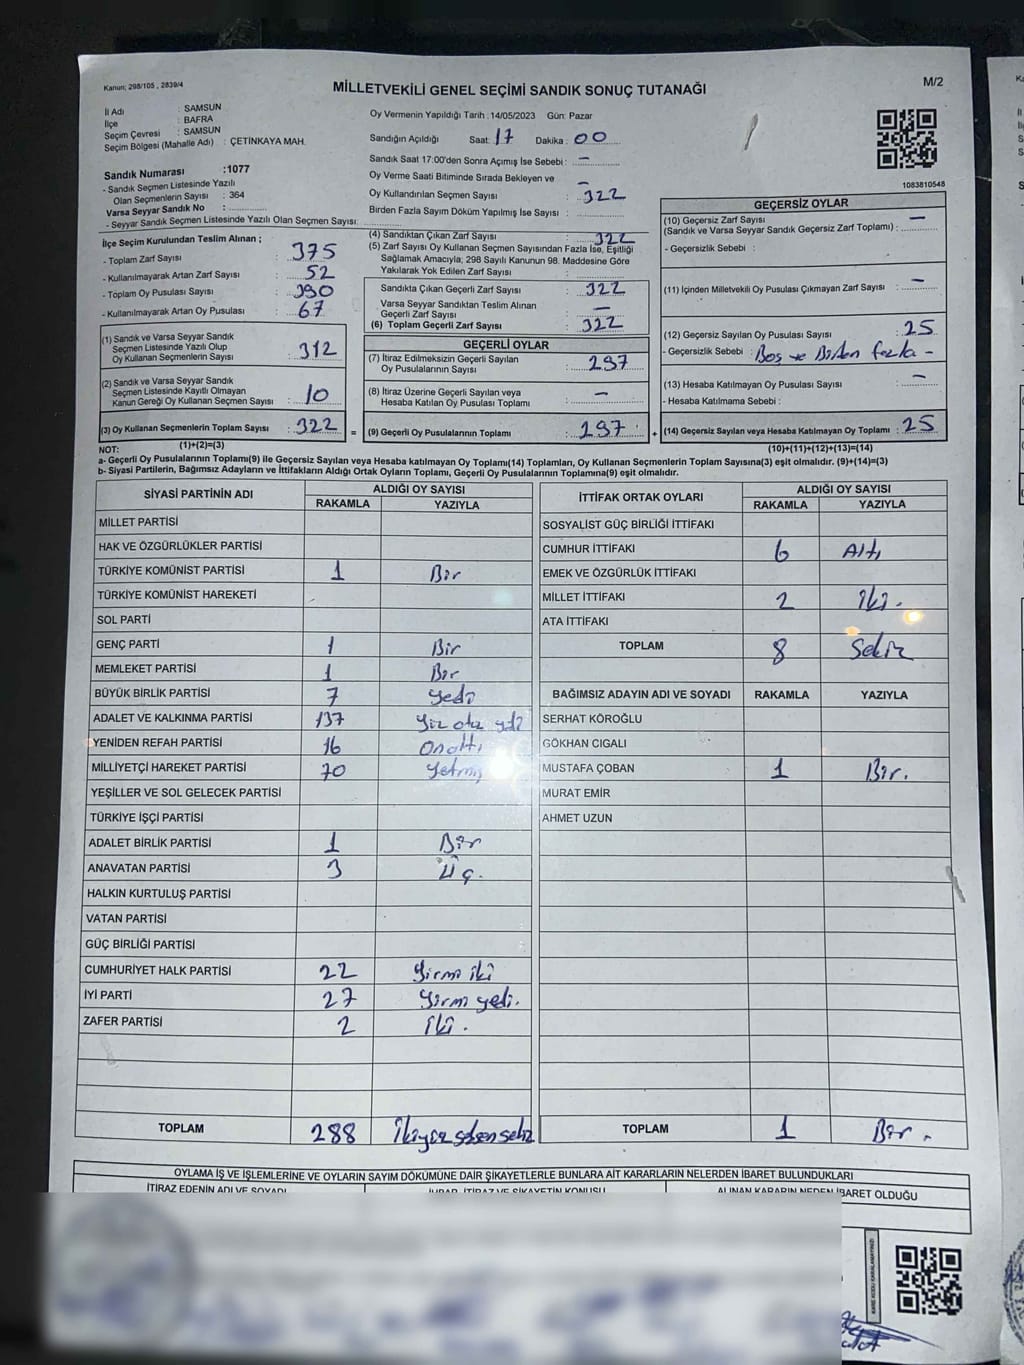 Kanun; 298/105 , 2839/4
MİLLETVEKİLİ GENEL SEÇİMİ SANDIK SONUÇ TUTANAĞI
M/2
İl Adı : SAMSUN
İlçe : BAFRA
Seçim Çevresi : SAMSUN
Seçim Bölgesi (Mahalle Adı) : ÇETİNKAYA MAH.
Sandık Numarası :1077
- Sandık Seçmen Listesinde Yazılı
Olan Seçmenlerin Sayısı : 364
Varsa Seyyar Sandık No :
- Seyyar Sandık Seçmen Listesinde Yazılı Olan Seçmen Sayısı:
Oy Vermenin Yapıldığı Tarih : 14/05/2023 Gün: Pazar
Sandığın Açıldığı Saat: 17 Dakika : 00
Sandık Saat 17:00'den Sonra Açımış İse Sebebi : –
Oy Verme Saati Bitiminde Sırada Bekleyen ve –
Oy Kullandırılan Seçmen Sayısı : 322
Birden Fazla Sayım Döküm Yapılmış İse Sayısı :
1083810548
İlçe Seçim Kurulundan Teslim Alınan ;
- Toplam Zarf Sayısı : 375
- Kullanılmayarak Artan Zarf Sayısı : 52
- Toplam Oy Pusulası Sayısı : 390
- Kullanılmayarak Artan Oy Pusulası : 67
(1) Sandık ve Varsa Seyyar Sandık
Seçmen Listesinde Yazılı Olup
Oy Kullanan Seçmenlerin Sayısı : 312
(2) Sandık ve Varsa Seyyar Sandık
Seçmen Listesinde Kayıtlı Olmayan
Kanun Gereği Oy Kullanan Seçmen Sayısı : 10
(3) Oy Kullanan Seçmenlerin Toplam Sayısı : 322
(1)+(2)=(3)
(4) Sandıktan Çıkan Zarf Sayısı : 322
(5) Zarf Sayısı Oy Kullanan Seçmen Sayısından Fazla İse, Eşitliği
Sağlamak Amacıyla; 298 Sayılı Kanunun 98. Maddesine Göre
Yakılarak Yok Edilen Zarf Sayısı :
Sandıkta Çıkan Geçerli Zarf Sayısı : 322
Varsa Seyyar Sandıktan Teslim Alınan
Geçerli Zarf Sayısı : –
(6) Toplam Geçerli Zarf Sayısı : 322
GEÇERLİ OYLAR
(7) İtiraz Edilmeksizin Geçerli Sayılan
Oy Pusulalarının Sayısı : 297
(8) İtiraz Üzerine Geçerli Sayılan veya
Hesaba Katılan Oy Pusulası Toplamı : –
= (9) Geçerli Oy Pusulalarının Toplamı : 297 +
GEÇERSİZ OYLAR
(10) Geçersiz Zarf Sayısı –
(Sandık ve Varsa Seyyar Sandık Geçersiz Zarf Toplamı) :
- Geçersizlik Sebebi :
(11) İçinden Milletvekili Oy Pusulası Çıkmayan Zarf Sayısı : –
(12) Geçersiz Sayılan Oy Pusulası Sayısı : 25
- Geçersizlik Sebebi : Boş ve Birden fazla -
(13) Hesaba Katılmayan Oy Pusulası Sayısı : –
- Hesaba Katılmama Sebebi :
(14) Geçersiz Sayılan veya Hesaba Katılmayan Oy Toplamı : 25
(10)+(11)+(12)+(13)=(14)
NOT:
a- Geçerli Oy Pusulalarının Toplamı(9) ile Geçersiz Sayılan veya Hesaba Katılmayan Oy Toplamı(14) Toplamları, Oy Kullanan Seçmenlerin Toplam Sayısına(3) eşit olmalıdır. (9)+(14)=(3)
b- Siyasi Partilerin, Bağımsız Adayların ve İttifakların Aldığı Ortak Oyların Toplamı, Geçerli Oy Pusulalarının Toplamına(9) eşit olmalıdır.
SİYASİ PARTİNİN ADI ALDIĞI OY SAYISI
RAKAMLA YAZIYLA
MİLLET PARTİSİ
HAK VE ÖZGÜRLÜKLER PARTİSİ
TÜRKİYE KOMÜNİST PARTİSİ 1 Bir
TÜRKİYE KOMÜNİST HAREKETİ
SOL PARTİ
GENÇ PARTİ 1 Bir
MEMLEKET PARTİSİ 1 Bir
BÜYÜK BİRLİK PARTİSİ 7 Yedi
ADALET VE KALKINMA PARTİSİ 137 Yüz otuz yedi
YENİDEN REFAH PARTİSİ 16 Onaltı
MİLLİYETÇİ HAREKET PARTİSİ 70 Yetmiş
YEŞİLLER VE SOL GELECEK PARTİSİ
TÜRKİYE İŞÇİ PARTİSİ
ADALET BİRLİK PARTİSİ 1 Bir
ANAVATAN PARTİSİ 3 Üç.
HALKIN KURTULUŞ PARTİSİ
VATAN PARTİSİ
GÜÇ BİRLİĞİ PARTİSİ
CUMHURİYET HALK PARTİSİ 22 Yirmi iki
İYİ PARTİ 27 Yirmi yedi.
ZAFER PARTİSİ 2 iki.
TOPLAM 288 İkiyüz seksen sekiz
İTTİFAK ORTAK OYLARI ALDIĞI OY SAYISI
RAKAMLA YAZIYLA
SOSYALİST GÜÇ BİRLİĞİ İTTİFAKI
CUMHUR İTTİFAKI 6 Altı
EMEK VE ÖZGÜRLÜK İTTİFAKI
MİLLET İTTİFAKI 2 iki.
ATA İTTİFAKI
TOPLAM 8 Sekiz
BAĞIMSIZ ADAYIN ADI VE SOYADI RAKAMLA YAZIYLA
SERHAT KÖROĞLU
GÖKHAN CIGALI
MUSTAFA ÇOBAN 1 Bir.
MURAT EMİR
AHMET UZUN
TOPLAM 1 Bir.
OYLAMA İŞ VE İŞLEMLERİNE VE OYLARIN SAYIM DÖKÜMÜNE DAİR ŞİKAYETLERLE BUNLARA AİT KARARLARIN NELERDEN İBARET BULUNDUKLARI
İTİRAZ EDENİN ADI VE SOYADI İHBAR, İTİRAZ VE ŞİKAYETİN KONUSU ALINAN KARARIN NEDEN İBARET OLDUĞU